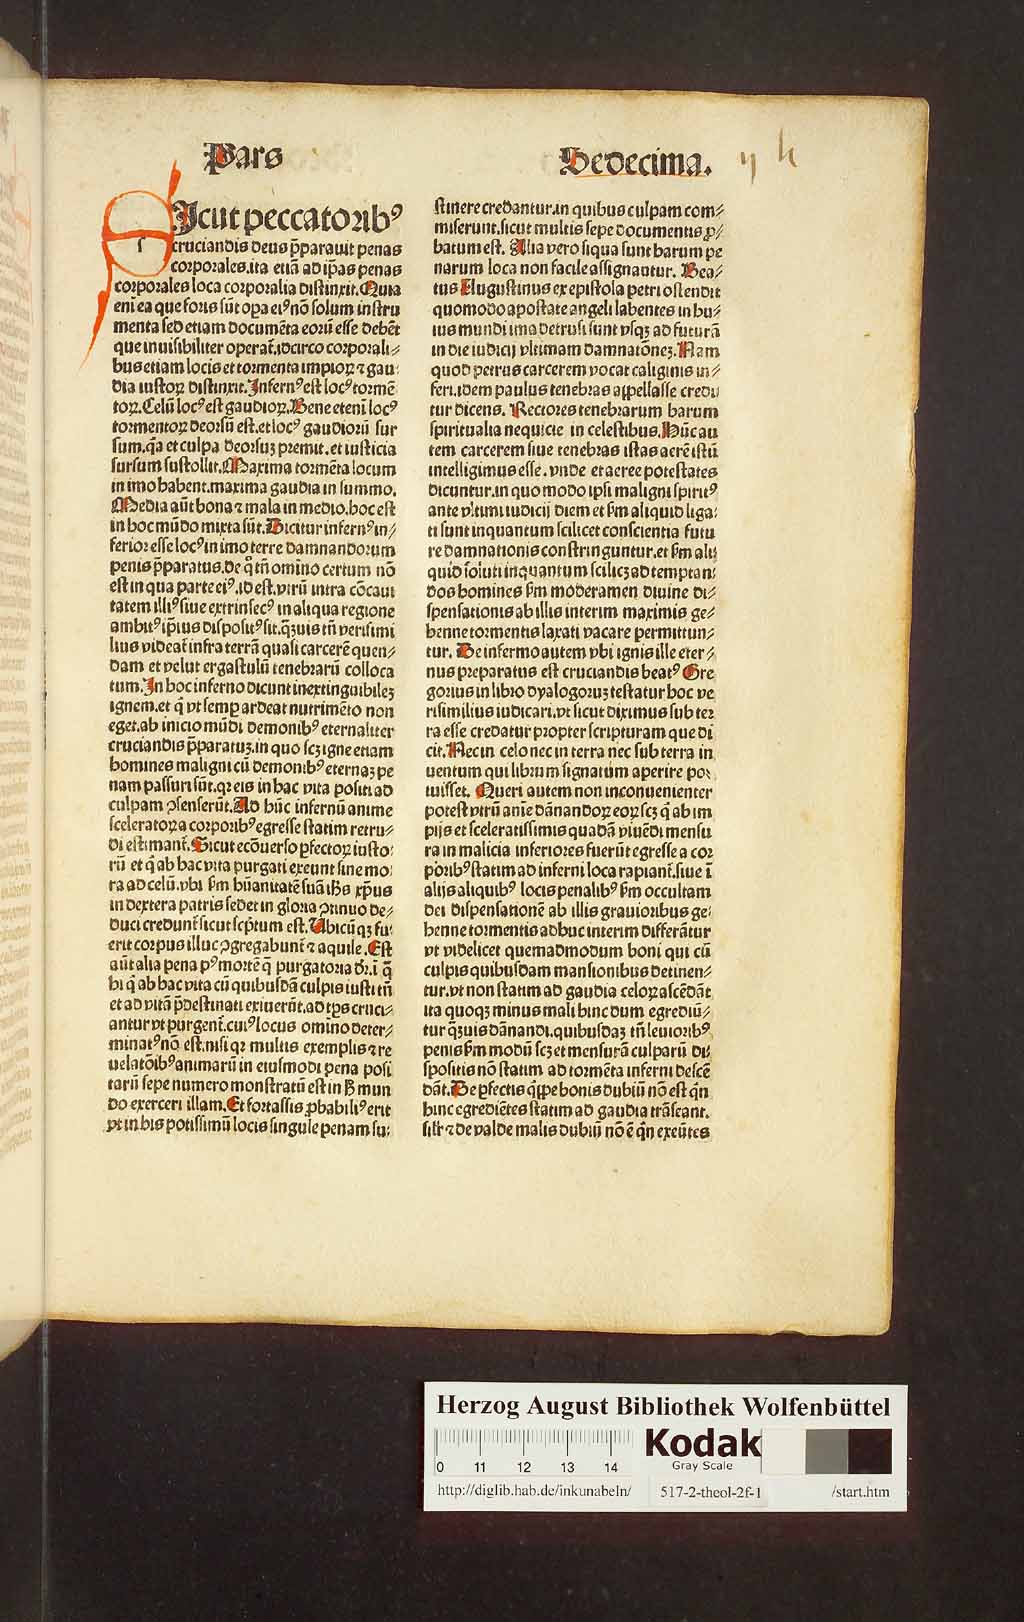 Pars
Sedecima.
Sicut peccatoribꝰ
cruciandis deus p̄parauit penas
corporales.ita etiā ad ip̄as penas
corporales loca corporalia distinxit.Quia
eni ea que foris sūt oꝑa eiꝰ nō solum instru
menta sed etiam documēta eorū esse debēt
que inuisibiliter operat̄.idcirco corporali⸗
bus etiam locis et tormenta impioꝝ ⁊ gau⸗
dia iustoꝝ distinxit.Infernꝰ est locꝰ tormē
toꝝ.Celū locꝰ est gaudioꝝ.Bene eteni locꝰ
tormentoꝝ deorsū est.et locꝰ gaudiorū sur
sum.q̄a et culpa deorsuꝫ premit.et iusticia
sursum sustollit.Maxima tormēta locum
in imo habent.maxima gaudia in summo.
Media aūt bona ⁊ mala in medio.hoc est
in hoc mūdo mixta sūt.Dicitur infernꝰ in⸗
ferior esse locꝰ in imo terre damnandorum
penis p̄paratus.de q̊ tn̄ omīno certum nō
est in qua parte eiꝰ.id est.vtrū intra cōcaui
tatem illiꝰ siue extrinsecꝰ in aliqua regione
ambitꝰ ip̄ius dispositꝰ sit.qꝫuis tn̄ verisimi
lius videat̄ infra terrā quasi carcerē quen⸗
dam et velut ergastulū tenebrarū colloca
tum.In hoc inferno dicunt inextinguibileꝫ
ignem.et q̊ vt semꝑ ardeat nutrimēto non
eget.ab inicio mūdi demonibꝰ eternaliter
cruciandis p̄paratuꝫ.in quo scꝫ igne etiam
homines maligni cū demonibꝰ eternaꝫ pe
nam passuri sūt.qꝛ eis in hac vita positi ad
culpam ꝯsenserūt.Ad hūc infernū anime
sceleratoꝝ a corporibꝰ egresse statim retru⸗
di estimant̄.Sicut ecōuerso ꝑfectoꝝ iusto⸗
rū et q̊ ab hac vita purgati exeunt sine mo⸗
ra ad celū.vbi ẜm hūanitatē suā ihs xp̄us
in dextera patris sedet in gloria ꝯtinuo de⸗
duci credunt̄ sicut scp̄tum est.Vbicūqꝫ fu⸗
erit corpus illuc ꝯgregabunt̄ ⁊ aquile.Est
aūt alia pena pꝰ mortē q̄ purgatoria dr̄.ī q̄
hi q̊ ab hac vita cū quibusdā culpis iusti tn̄
et ad vitā p̄destinati exiuerūt.ad tp̄s cruci⸗
antur vt purgent̄.cuiꝰ locus omīno deter⸗
minatꝰ nō est.nisi qꝛ multis exemplis ⁊ re
uelatōibꝰ animarū in eiusmodi pena posi
tarū sepe numero monstratū est in h̄ mun
do exerceri illam.Et fortassis ꝓbabiliꝰ erit
vt in his potissimū locis singule penam su⸗
stinere credantur.in quibus culpam com⸗
miserunt.sicut multis sepe documentis ꝓ⸗
batum est. Alia vero siqua sunt harum pe
narum loca non facile assignantur. Bea⸗
tus Augustinus ex epistola petri ostendit
quomodo apostate angeli labentes in hu⸗
ius mundi ima detrusi sunt vsqꝫ ad futurā
in die iudicij vltimam damnatōneꝫ.Nam
quod petrus carcerem vocat caliginis in⸗
feri.idem paulus tenebras appellasse credi
tur dicens. Rectores tenebrarum harum
spiritualia nequicie in celestibus.Hūc au
tem carcerem siue tenebras istas aerē istū
intelligimus esse.vnde et aeree potestates
dicuntur.in quo modo ipsi maligni spiritꝰ
ante vltimi iudicij diem et ẜm aliquid liga⸗
ti sunt inquantum scilicet conscientia futu
re damnationis constringuntur.et ẜm ali
quid soluti inquantum scilicꝫ ad temptan⸗
dos homines ẜm moderamen diuine di⸗
spensationis ab illis interim maximis ge⸗
henne tormentis laxati vacare permittun⸗
tur. De inferno autem vbi ignis ille eter⸗
nus preparatus est cruciandis beatꝰ Gre
gorius in libro dyalogoruꝫ testatur hoc ve
risimilius iudicari.vt sicut diximus sub ter
ra esse credatur propter scripturam que di
cit.Nec in celo nec in terra nec sub terra in
uentum qui librum signatum aperire po⸗
tuisset. Queri autem non inconuenienter
potest vtrū anīe dānandoꝝ eoꝝ scꝫ q̊ ab im
pijs et sceleratissimis quadā viuēdi mensu
ra in malicia inferiores fuerūt egresse a cor
poribꝰ statim ad inferni loca rapiant̄.siue ī
alijs aliquibꝰ locis penalibꝰ ẜm occultam
dei dispensationē ab illis grauioribus ge⸗
henne tormentis adhuc interim differātur
vt videlicet quemadmodum boni qui cū
culpis quibusdam mansionibus detinen⸗
tur.vt non statim ad gaudia celoꝝ ascēdāt
ita quoqꝫ minus mali hinc dum egrediū⸗
tur qꝫuis dānandi.quibusdaꝫ tn̄ leuioribꝰ
penis ẜm modū scꝫ et mensurā culparū di⸗
spositis nō statim ad tormēta inferni descē
dāt.De ꝑfectis q̄ppe bonis dubiū nō est q̄n
hinc egrediētes statim ad gaudia trāseant.
silr̄ ⁊ de valde malis dubiū nō ē q̄n exeūtes
Herzog August Bibliothek Wolfenbüttel
0 11 12 13 14
Kodak
Gray Scale
http://diglib.hab.de/inkunabeln/ 517-2-theol-2f-1 /start.htm